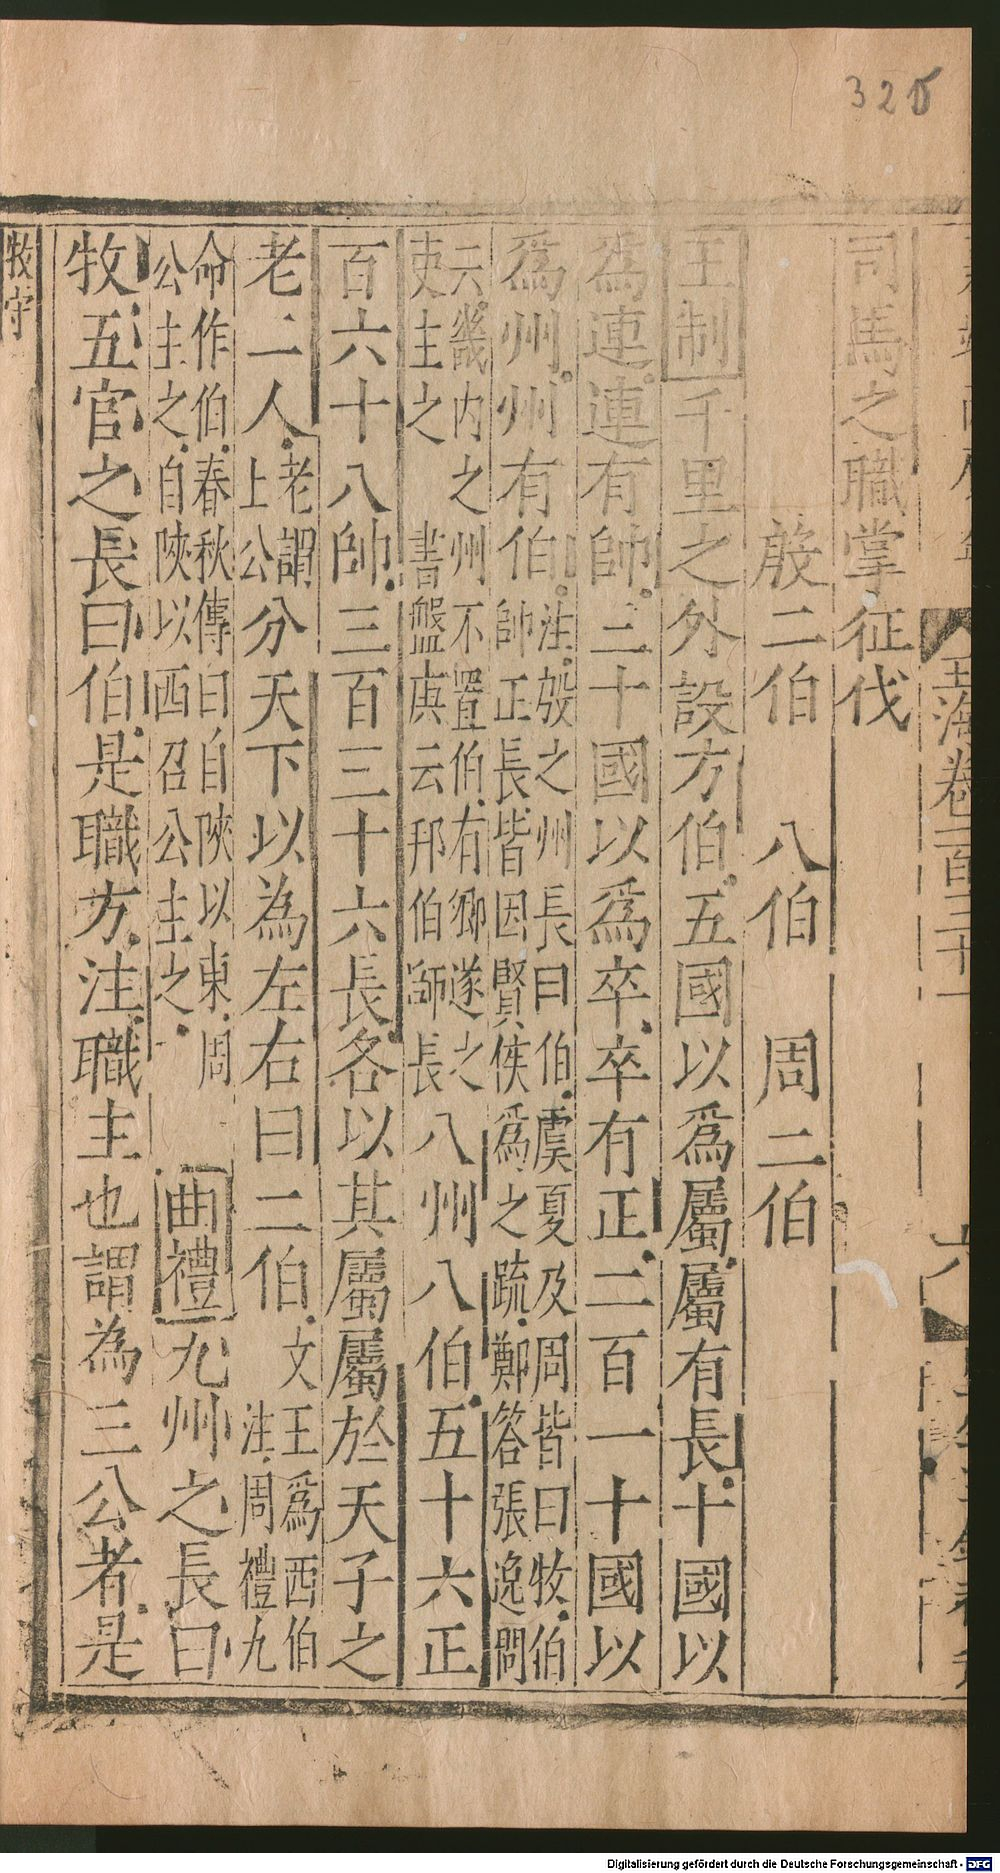 325
玉海卷一百三十一
六
司馬之職掌征伐
殷二伯 八伯 周二伯
王制千里之外設方伯五國以爲屬屬有長十國以
爲連連有帥三十國以爲卒卒有正二百一十國以
爲州州有伯注殷之州長曰伯虞夏及周皆曰牧伯
帥正長皆因賢侯爲之疏鄭答張逸問
云畿内之州不置伯有鄉遂之
吏主之 書盤庚云邦伯師長
八州八伯五十六正
百六十八帥三百三十六長各以其屬屬於天子之
老二人老謂
上公
分天下以為左右曰二伯文王爲西伯
注周禮九
命作伯春秋傳曰自陝以東周
公主之自陝以西召公主之
曲禮九州之長曰
牧五官之長曰伯是職方注職主也謂為三公者是
牧守
Digitalisierung gefördert durch die Deutsche Forschungsgemeinschaft - DFG